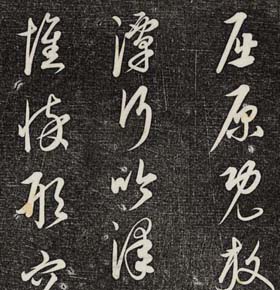 屈原既放
潭行吟澤
憔悴形容